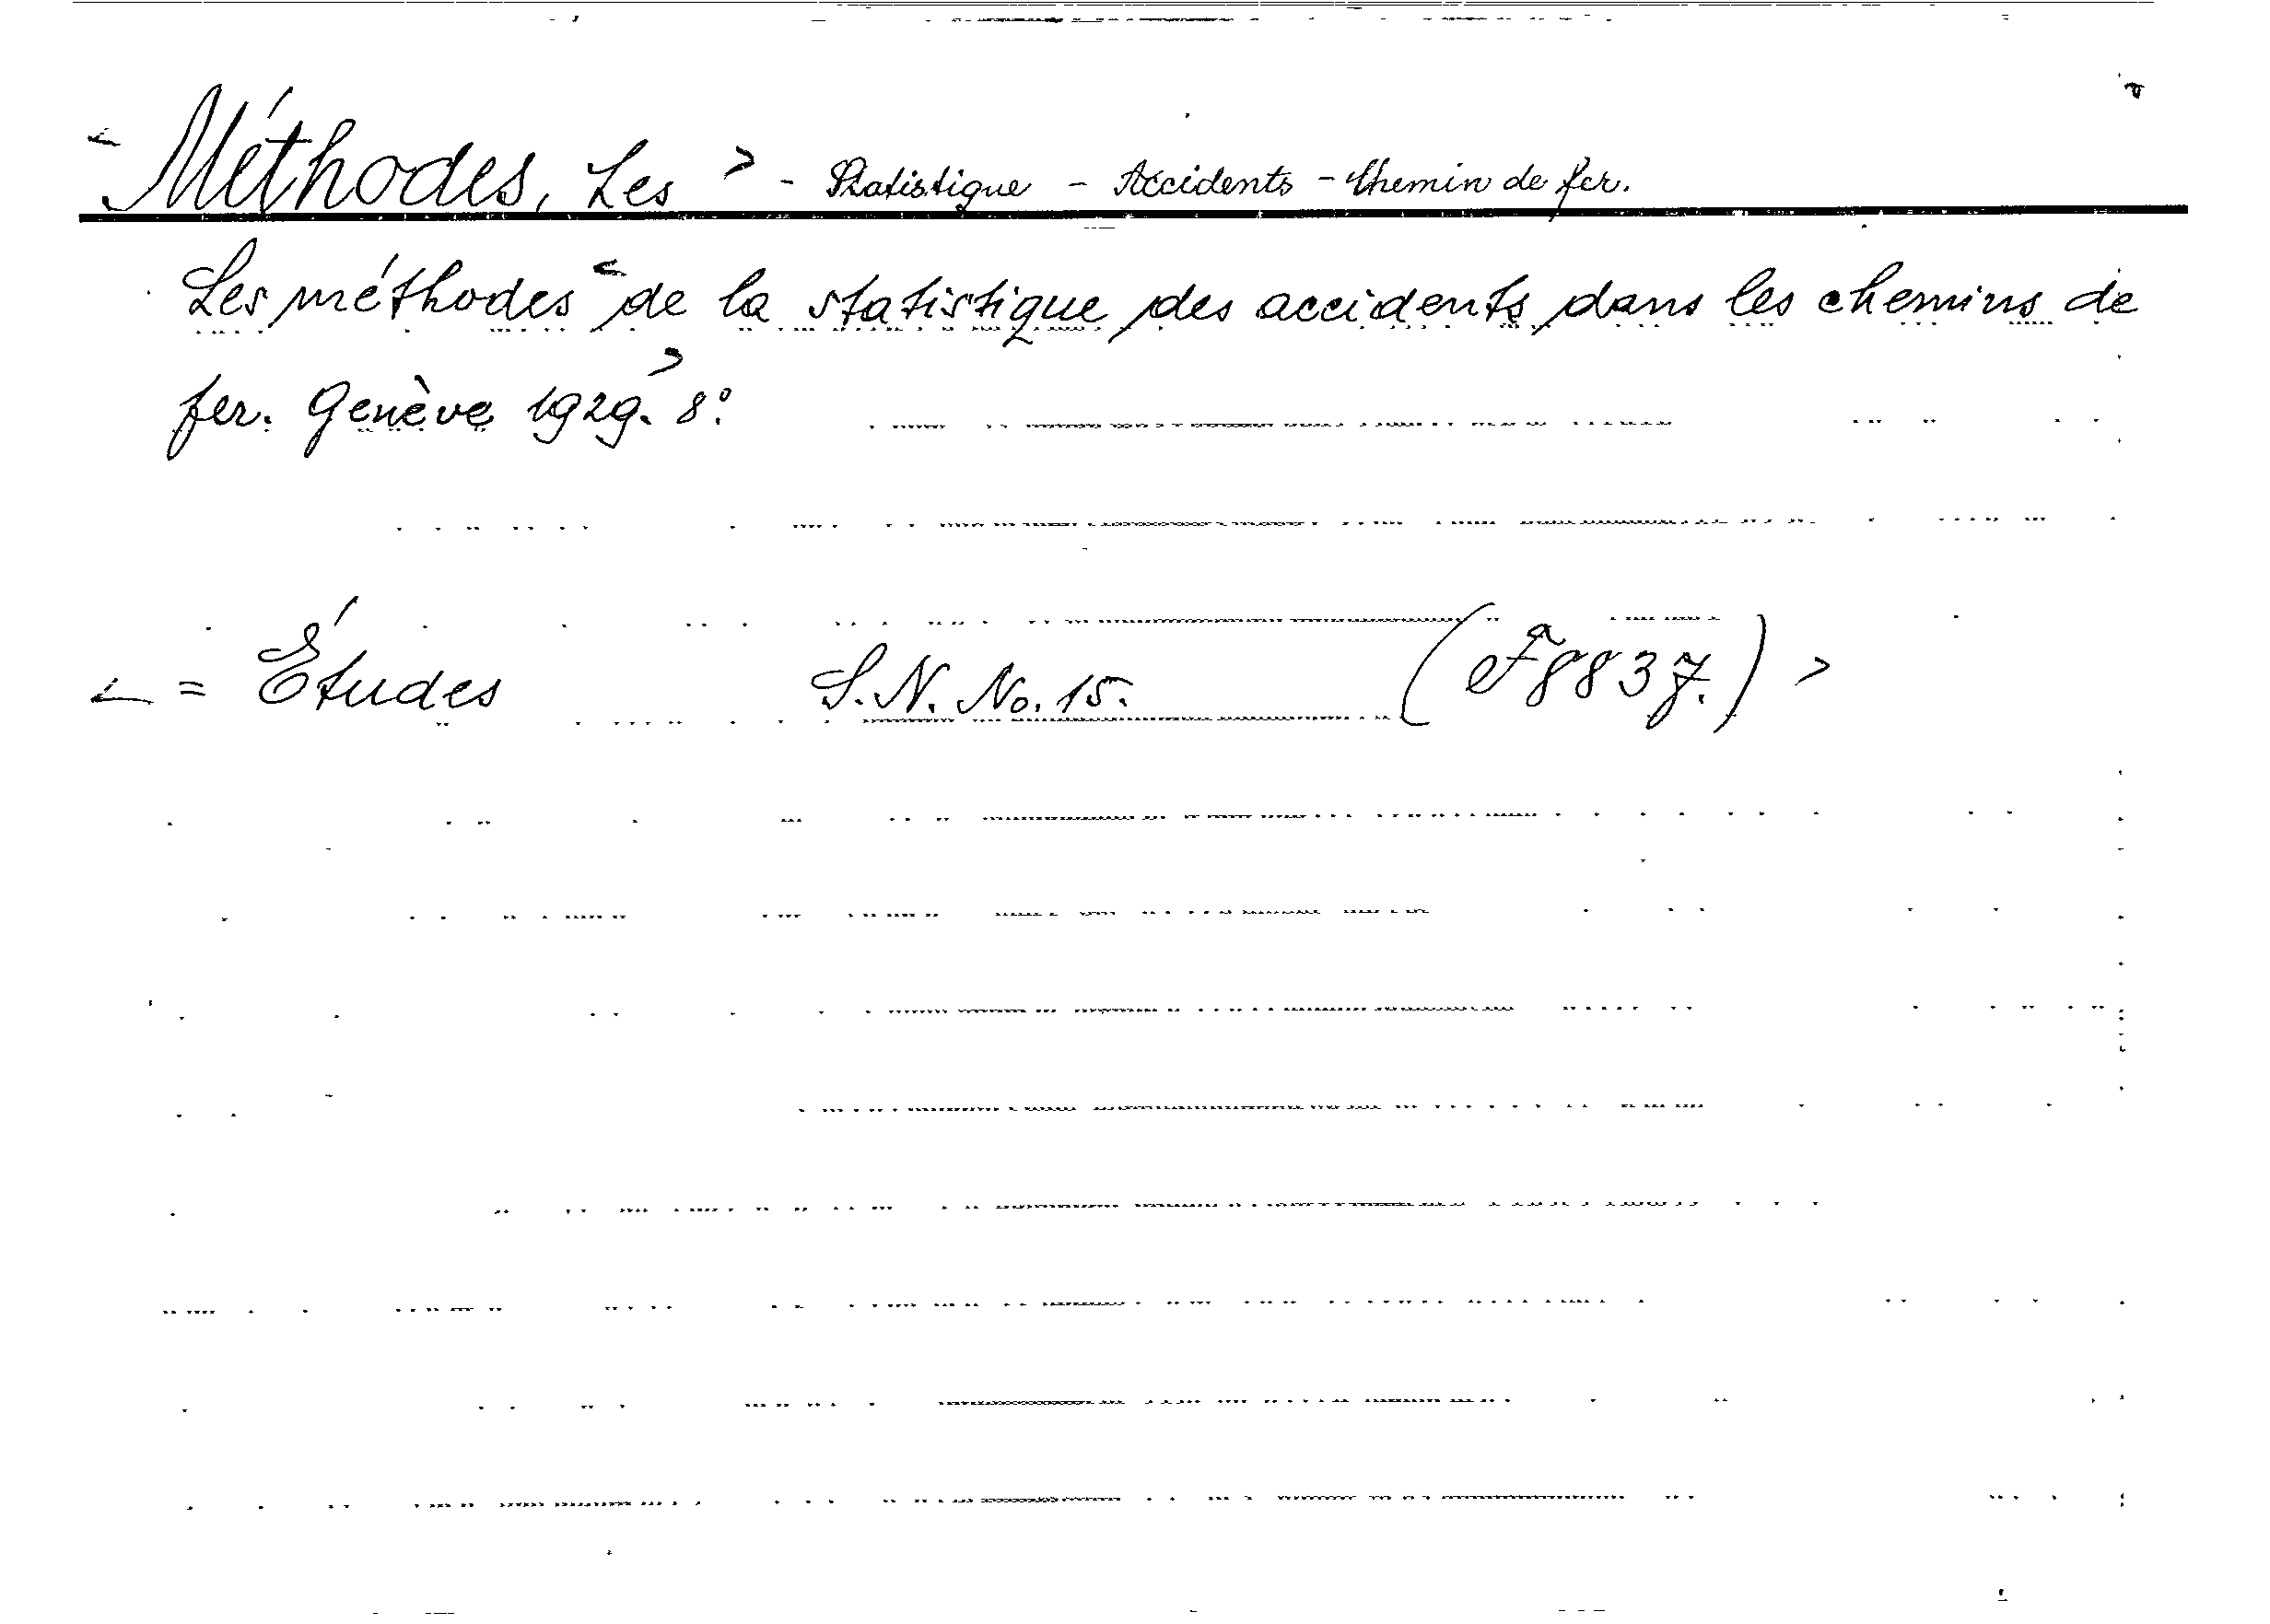 < Méthodes, Les > - Statistique - Accidents - Chemin de fer.
Les méthodes < de la statistique des accidents dans les chemins de
fer. Genève 1929. > 8º.
< = Études S.N. No. 15. (F 8837.) >